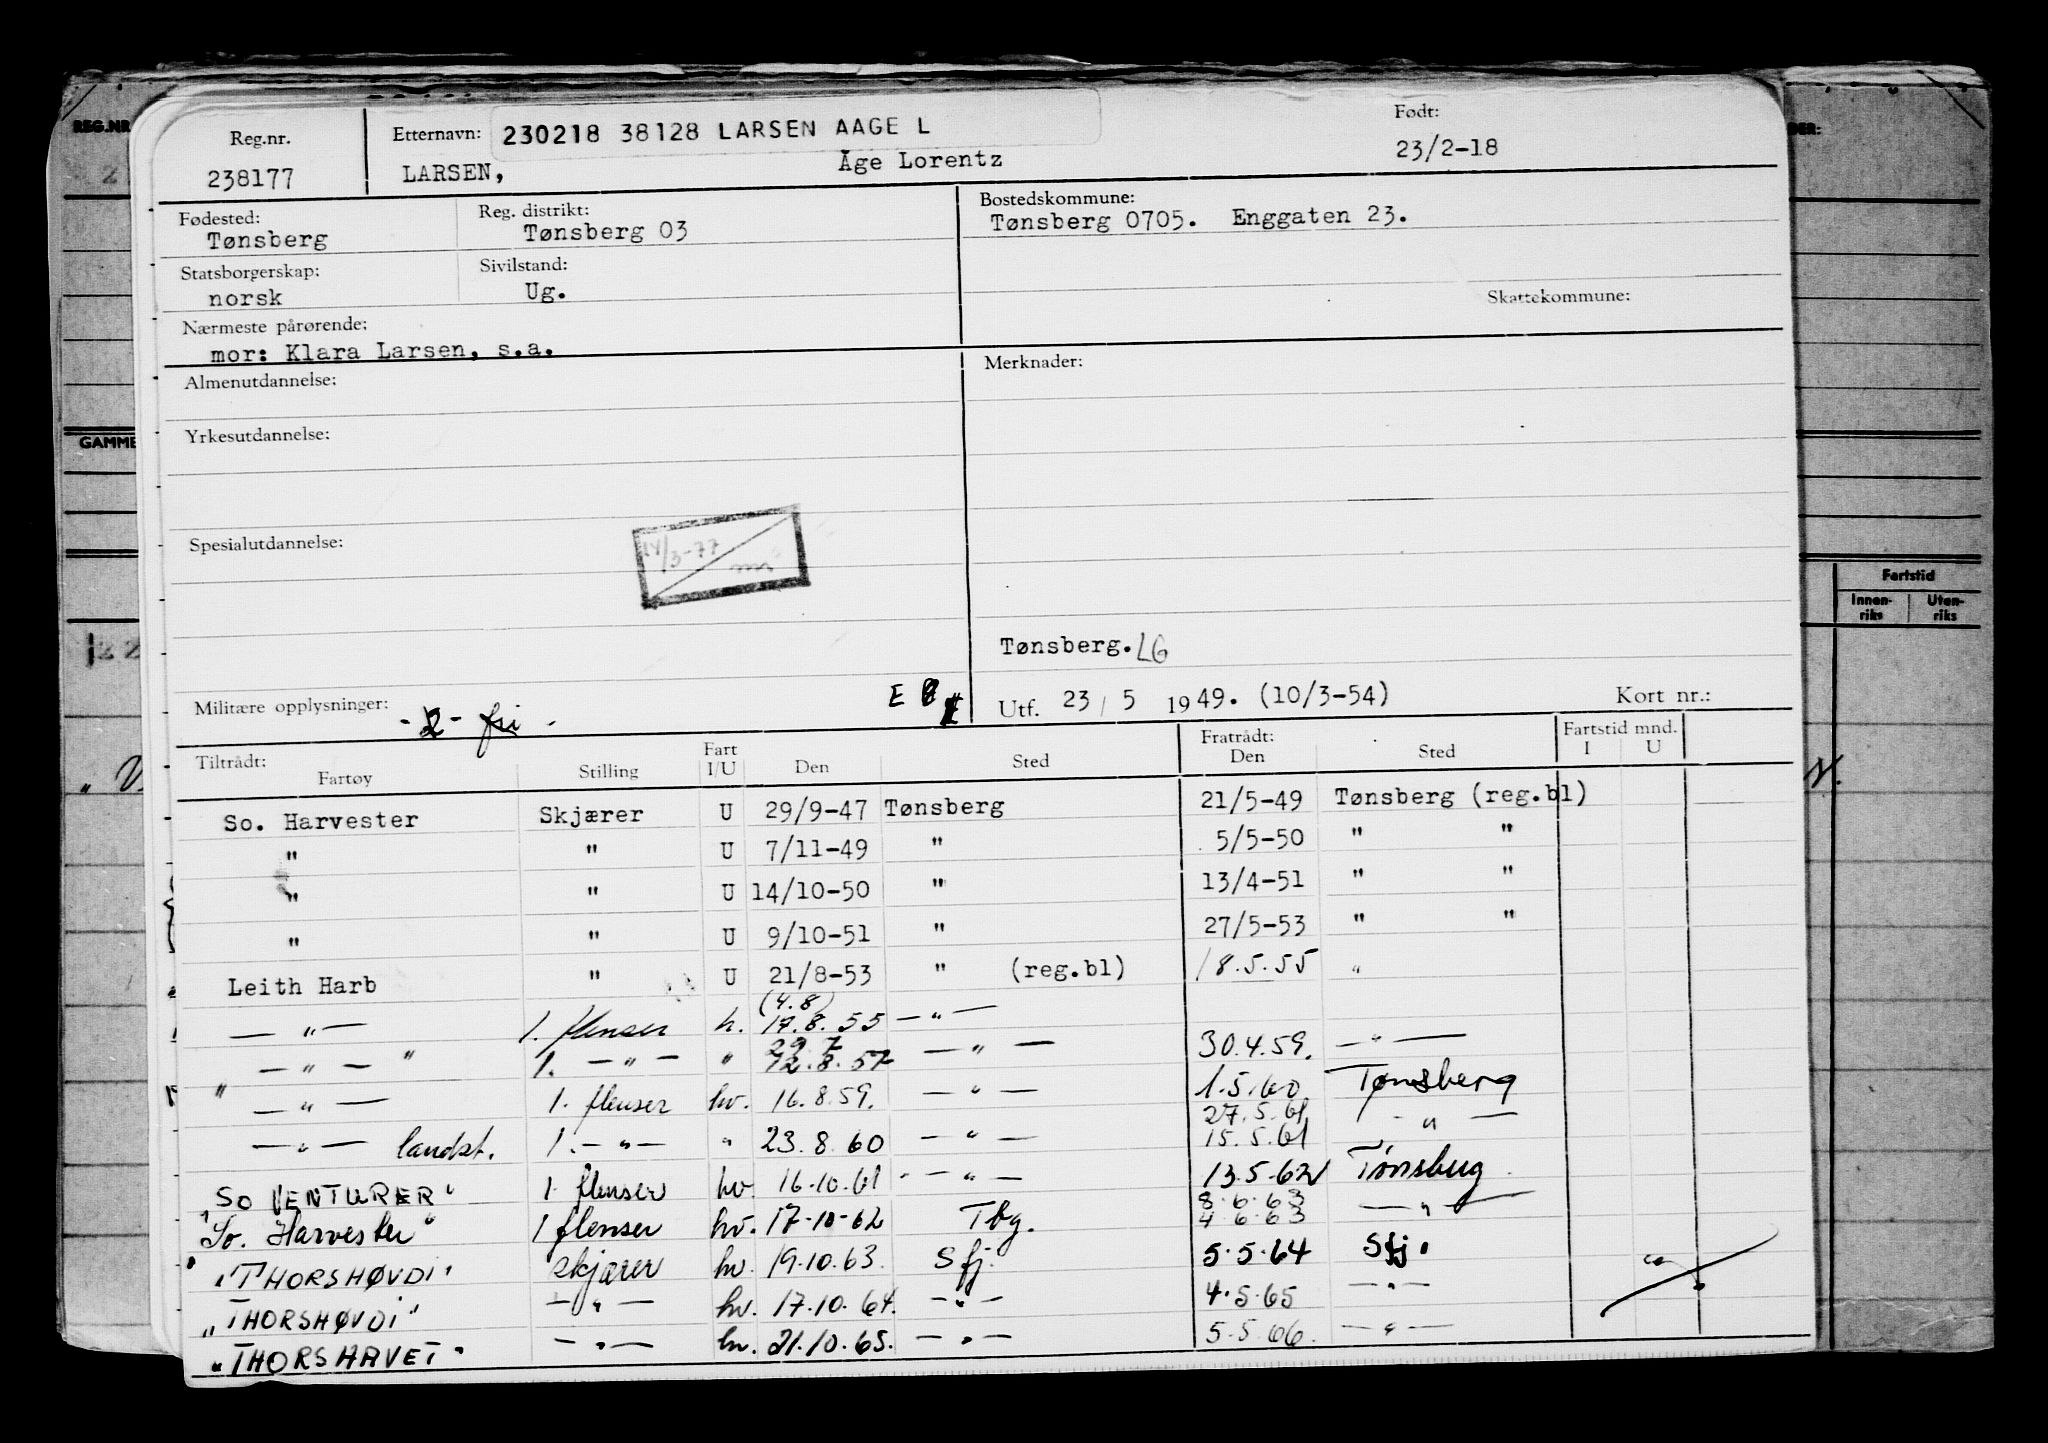 REG.NR
Reg.nr. Etternavn: 230218 38128 LARSEN AAGE L Født:
238177 LARSEN, Åge Lorentz 23/2-18
Fødested: Reg. distrikt: Bostedskommune:
Tønsberg Tønsberg 03 Tønsberg 0705. Enggaten 23.
Statsborgerskap: Sivilstand:
norsk Ug. Skattekommune:
Nærmeste pårørende:
mor: Klara Larsen, s.a.
Almenutdannelse: Merknader:
Yrkesutdannelse:
GAMME
Spesialutdannelse: 14/3-77
Fartstid
Innen-riks Uten-riks
Tønsberg. LG
Militære opplysninger: fri - E
Utf. 23 / 5 1949. (10/3-54) Kort nr.:
Tiltrådt: Fart Fratrådt: Fartstid mnd.
Fartøy Stilling I/U Den Sted Den Sted I U
So. Harvester Skjærer U 29/9-47 Tønsberg 21/5-49 Tønsberg (reg.bl)
" " U 7/11-49 " 5/5-50 " "
" " U 14/10-50 " 13/4-51 " "
" " U 9/10-51 " 27/5-53 " "
Leith Harb " U 21/8-53 " (reg.bl) 18.5.55 "
(4.8)
— " — 1. flenser h. 17.8.55 — " —
29.7
" — " — " 1. — " — " 12.8.57 — " — 30.4.59. — " —
— " — 1. flenser hv. 16.8.59. — " — 1.5.60 Tønsberg
27.5.61
— " — landst. 1. — " — " 23.8.60 — " — 15.5.61 — " —
"SO VENTURER" 1. flenser hv. 16.10.61 — " — 13.5.62 Tønsberg
8.6.63
"So. Harvester" 1 flenser hv. 17-10-62 Tbg. 4.6.63 — " —
"THORSHØVDI" skjærer hv. 19.10.63. Sfj. 5.5.64 Sfj.
"THORSHØVDI" — " — hv. 17.10.64. — " — 4.5.65 — " —
"THORSHAVET" — " — hv. 21.10.65. — " — 5.5.66. — " —